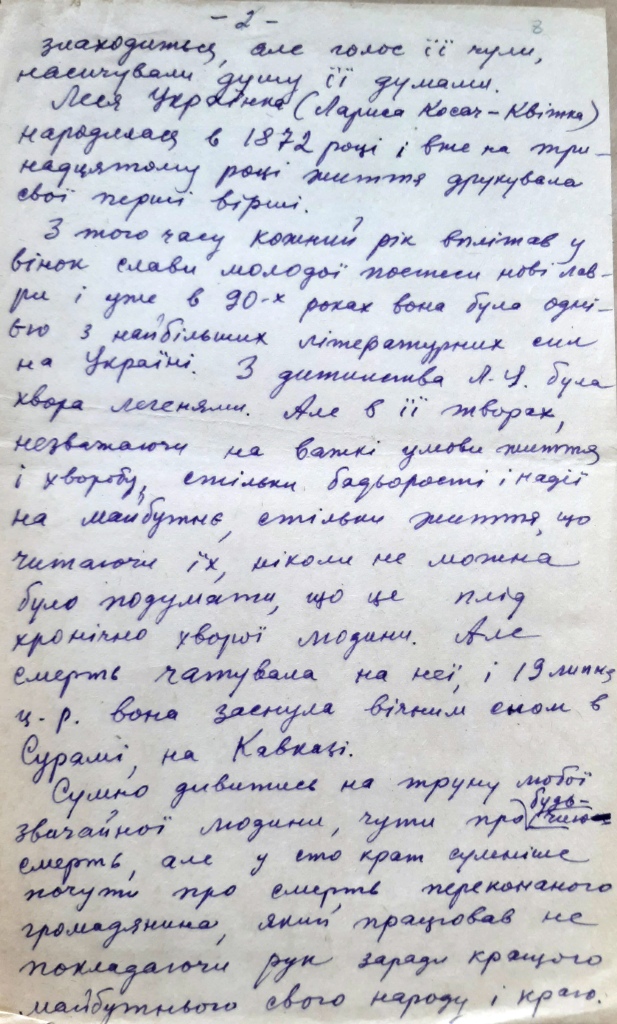 - 2 -
8
знаходиться, але голос її чули,
насичували душу її думами.
Леся Українка (Лариса Косач-Квітка)
народилася в 1872 році і вже на три-
надцятому році життя друкувала
свої перші вірші.
З того часу кожний рік вплітав у
вінок слави молодої поетеси нові лав-
ри і уже в 90-х роках вона була одні-
єю з найбільших літературних сил
на Україні. З дитинства Л.У. була
хвора легенями. Але в її творах,
незважаючи на важкі умови життя
і хворобу, стільки бадьорості і надії
на майбутнє, стільки життя, що
читаючи їх, ніколи не можна
було подумати, що це плід
хронічно хворої людини. Але
смерть чатувала на неї, і 19 липня
ц.р. вона заснула вічним сном в
Сурамі, на Кавказі.
Сумно дивитись на труну любої
звичайної людини, чути про будь-чию
смерть, але у сто крат сумніше
почути про смерть переконаного
громадянина, який працював не
покладаючи рук заради кращого
майбутнього свого народу і краю.